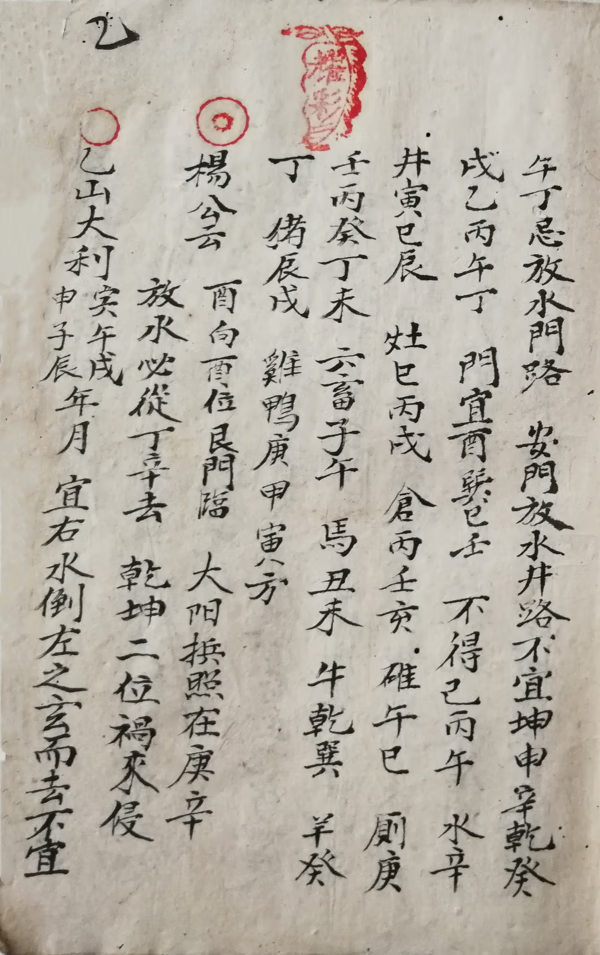 午丁忌放水門路 安門放水井路不宜坤申辛乾癸
戌乙丙午丁 門宜酉巽巳壬 不得己丙午 水辛
井寅巳辰 灶巳丙戌 倉丙壬亥 碓午巳 厠庚
壬丙癸丁未 六畜子午 馬丑未 牛乾巽 羊癸
丁 猪辰戌 雞鴨庚甲寅八方
楊公云 酉向酉位艮門臨 大阳拱照在庚辛
放水必從丁辛去 乾坤二位禍來侵
乙山大利寅午戌申子辰年月 宜右水倒左之玄而去不宜
乙